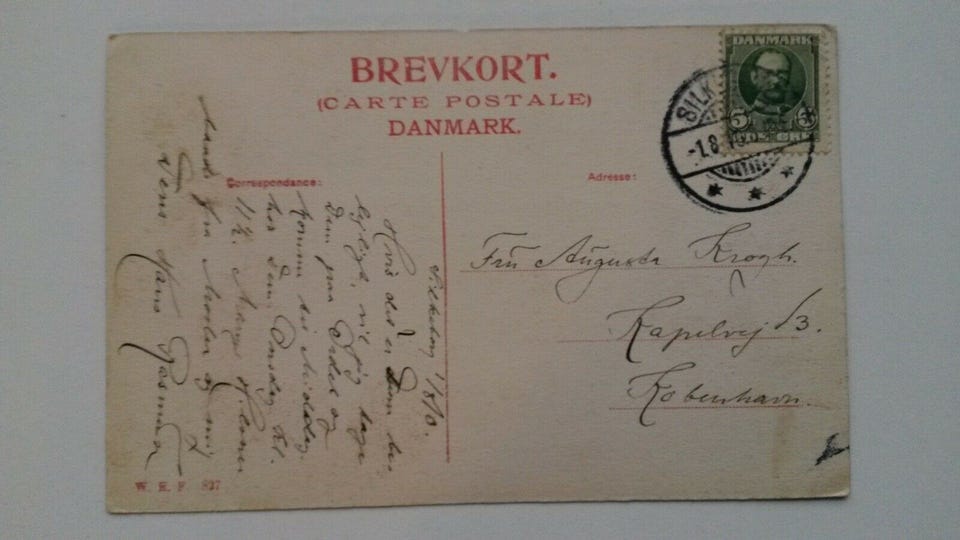 BREVKORT.
(CARTE POSTALE)
DANMARK.
DANMARK
5 5
SILK
-1.8.10
Correspondance:
Adresse:
Silkeborg 1/8 10.
Hvis det er Dem be-
lejligt, vil jeg tage
Dem paa Ordet og
komme til Middag
hos Dem Onsdag Kl.
11½. Mange Hilsner
fra Moder og mig
Deres Hans
Frü Augusta Krogh.
Kapelvej 13.
København.
W. K. F. 827